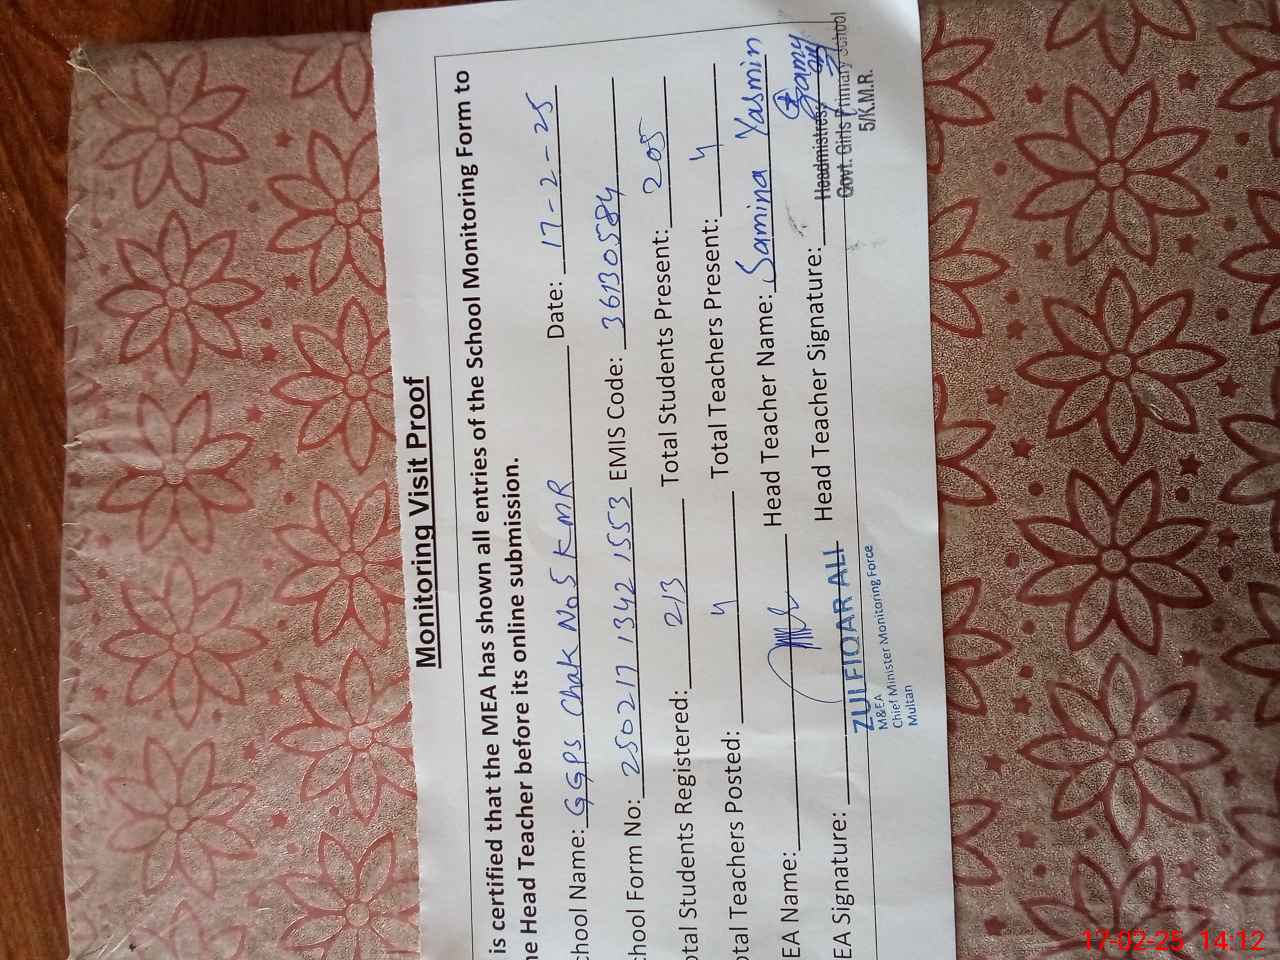 Monitoring Visit Proof
is certified that the MEA has shown all entries of the School Monitoring Form to
he Head Teacher before its online submission.
chool Name: GGPS Chak No 5 KMR Date: 17-2-25
chool Form No: 250217 1342 1553 EMIS Code: 36130584
otal Students Registered: 213 Total Students Present: 205
otal Teachers Posted: 4 Total Teachers Present: 4
EA Name: Head Teacher Name: Samina Yasmin
EA Signature: Head Teacher Signature:
ZULFIQAR ALI
M&EA
Chief Minister Monitoring Force
Multan
Headmistress
Govt. Girls Primary School
5/K.M.R.
17-02-25 14:12